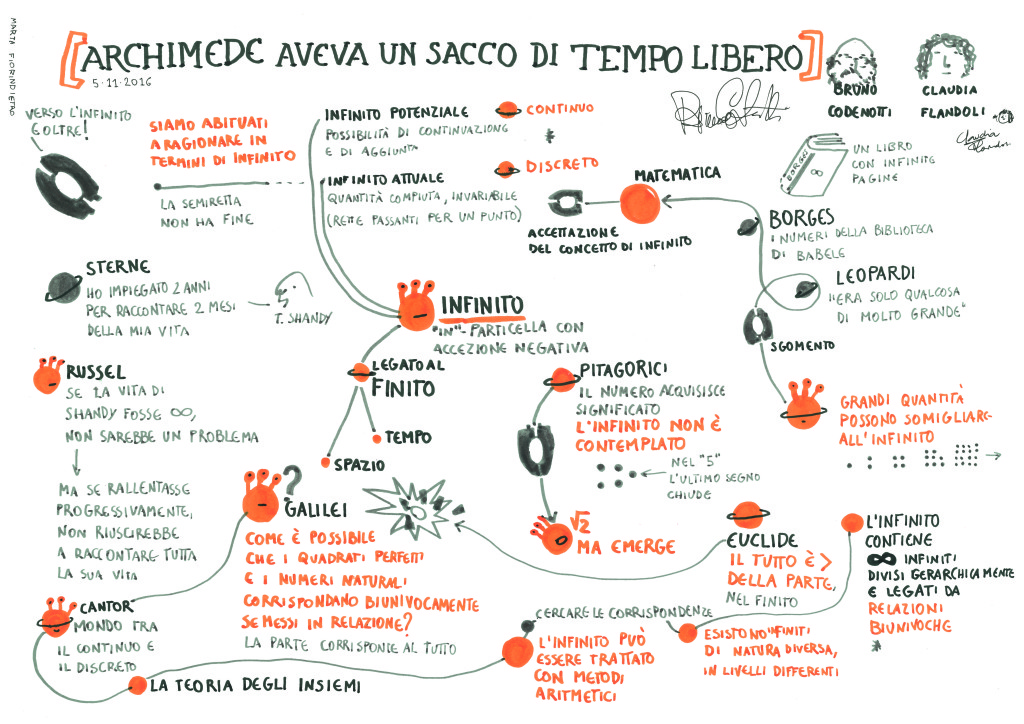 MARTA FIORINDI
[ARCHIMEDE AVEVA UN SACCO DI TEMPO LIBERO]
5·11·2016
BRUNO
CODENOTTI
CLAUDIA
FLANDOLI
VERSO L'INFINITO
E OLTRE!
SIAMO ABITUATI
A RAGIONARE IN
TERMINI DI INFINITO
LA SEMIRETTA
NON HA FINE
INFINITO POTENZIALE
POSSIBILITÀ DI CONTINUAZIONE
E DI AGGIUNTA
CONTINUO
*
INFINITO ATTUALE
QUANTITÀ COMPIUTA, INVARIABILE
(RETTE PASSANTI PER UN PUNTO)
DISCRETO
MATEMATICA
ACCETTAZIONE
DEL CONCETTO DI INFINITO
BORGES
∞
UN LIBRO
CON INFINITE
PAGINE
BORGES
I NUMERI DELLA BIBLIOTECA
DI BABELE
LEOPARDI
"ERA SOLO QUALCOSA
DI MOLTO GRANDE"
SGOMENTO
GRANDI QUANTITÀ
POSSONO SOMIGLIARE
ALL'INFINITO
STERNE
HO IMPIEGATO 2 ANNI
PER RACCONTARE 2 MESI
DELLA MIA VITA
T. SHANDY
INFINITO
"IN"-PARTICELLA CON
ACCEZIONE NEGATIVA
LEGATO AL
FINITO
TEMPO
SPAZIO
RUSSEL
SE LA VITA DI
SHANDY FOSSE ∞,
NON SAREBBE UN PROBLEMA
MA SE RALLENTASSE
PROGRESSIVAMENTE,
NON RIUSCIREBBE
A RACCONTARE TUTTA
LA SUA VITA
PITAGORICI
IL NUMERO ACQUISISCE
SIGNIFICATO
L'INFINITO NON È
CONTEMPLATO
NEL "5"
L'ULTIMO SEGNO
CHIUDE
√2
MA EMERGE
?
GALILEI
COME È POSSIBILE
CHE I QUADRATI PERFETTI
E I NUMERI NATURALI
CORRISPONDANO BIUNIVOCAMENTE
SE MESSI IN RELAZIONE?
LA PARTE CORRISPONDE AL TUTTO
EUCLIDE
IL TUTTO È >
DELLA PARTE,
NEL FINITO
L'INFINITO
CONTIENE
∞ INFINITI
DIVISI GERARCHICAMENTE
E LEGATI DA
RELAZIONI
BIUNIVOCHE
*
CANTOR
MONDO TRA
IL CONTINUO E
IL DISCRETO
LA TEORIA DEGLI INSIEMI
CERCARE LE CORRISPONDENZE
L'INFINITO PUÒ
ESSERE TRATTATO
CON METODI
ARITMETICI
ESISTONO "FINITI
DI NATURA DIVERSA,
IN LIVELLI DIFFERENTI